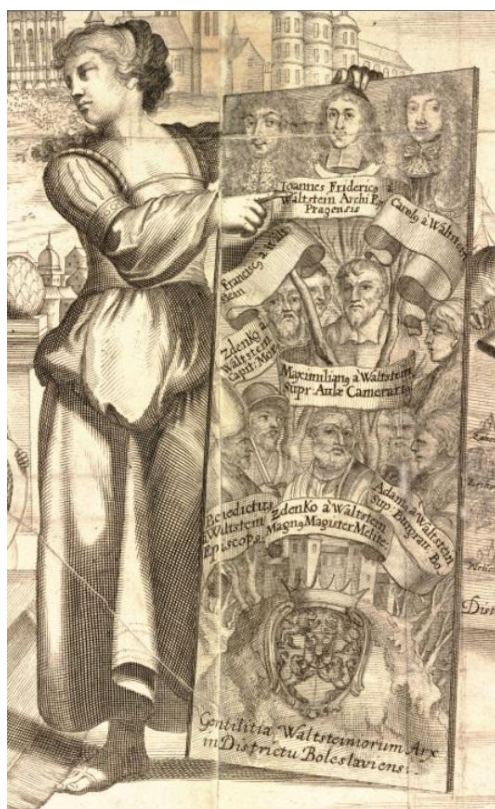 Ioannes Fridericꝯ à
Waltstein Archi Ep
Pragensis
Carolꝯ à Waltstein
Franciscꝯ à Walt
stein
Zdenkꝯ à
Waltstein
Capit:
Maximilianꝯ à Waltstein
Supr: Aulæ Camerariꝯ
Benedictus
à Waltstein
Episcopꝯ
Zdenko à Waltstein
Magnꝯ Magister Melite
Adamꝯ à Waltstein
Sup: Burgrau: Bo.
Gentilitia Waltsteiniorum Arx
in Districtu Boleslaviensi.
Dist